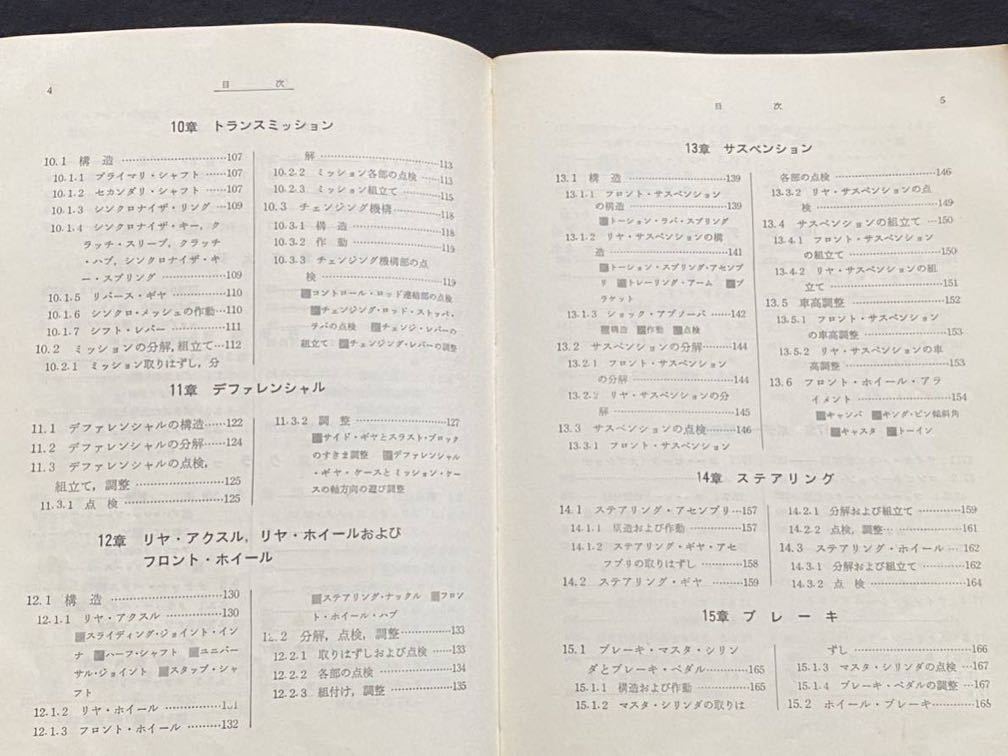 4
目 次
10章 トランスミッション
10.1 構 造 ……………………107
10.1.1 プライマリ・シャフト ……107
10.1.2 セカンダリ・シャフト ……107
10.1.3 シンクロナイザ・リング …109
10.1.4 シンクロナイザ・キー, ク
ラッチ・スリーブ, クラッチ
・ハブ, シンクロナイザ・キ
ー・スプリング ……………109
10.1.5 リバース・ギヤ ……………110
10.1.6 シンクロ・メッシュの作動…110
10.1.7 シフト・レバー ……………111
10.2 ミッションの分解, 組立て…112
10.2.1 ミッション取りはずし, 分
解 ……………………………113
10.2.2 ミッション各部の点検 ……113
10.2.3 ミッション組立て …………115
10.3 チェンジング機構……………118
10.3.1 構 造 ……………………118
10.3.2 作 動 ……………………119
10.3.3 チェンジング機構部の点
検 ……………………………119
■コントロール・ロッド連結部の点検
■チェンジング・ロッド・ストッパ,
ラバの点検 ■チェンジ・レバーの
組立て ■チェンジング・レバーの調整
11章 デファレンシャル
11.1 デファレンシャルの構造……122
11.2 デファレンシャルの分解……124
11.3 デファレンシャルの点検,
組立て, 調整 …………………125
11.3.1 点 検 ……………………125
11.3.2 調 整 ……………………127
■サイド・ギヤとスラスト・ブロック
のすきま調整 ■デファレンシャル
・ギヤ・ケースとミッション・ケー
スの軸方向の遊び調整
12章 リヤ・アクスル, リヤ・ホイールおよび
フロント・ホイール
12.1 構 造 ……………………130
12.1.1 リヤ・アクスル ……………130
■スライディング・ジョイント・イン
ナ ■ハーフ・シャフト ■ユニバー
サル・ジョイント ■スタッブ・シャ
フト
12.1.2 リヤ・ホイール ……………131
12.1.3 フロント・ホイール ………132
■ステアリング・ナックル ■フロン
ト・ホイール・ハブ
12.2 分解, 点検, 調整……………133
12.2.1 取りはずしおよび点検 ……133
12.2.2 各部の点検 …………………134
12.2.3 組付け, 調整 ………………135
目 次
5
13章 サスペンション
13.1 構 造 ……………………139
13.1.1 フロント・サスペンション
の構造 ………………………139
■トーション・ラバ・スプリング
13.1.2 リヤ・サスペンションの構
造 ……………………………141
■トーション・スプリング・アセンブ
リ ■トレーリング・アーム ■ブ
ラケット
13.1.3 ショック・アブソーバ ……142
■構造 ■作動 ■点検
13.2 サスペンションの分解 ………144
13.2.1 フロント・サスペンション
の分解 ………………………144
13.2.2 リヤ・サスペンションの分
解 ……………………………145
13.3 サスペンションの点検 ………146
13.3.1 フロント・サスペンション
各部の点検 …………………146
13.3.2 リヤ・サスペンションの点
検 ……………………………149
13.4 サスペンションの組立て ……150
13.4.1 フロント・サスペンション
の組立て ……………………150
13.4.2 リヤ・サスペンションの組
立て …………………………151
13.5 車高調整 ……………………152
13.5.1 フロント・サスペンション
の車高調整 …………………153
13.5.2 リヤ・サスペンションの車
高調整 ………………………153
13.6 フロント・ホイール・アラ
イメント ……………………154
■キャンバ ■キング・ピン傾斜角
■キャスタ ■トーイン
14章 ステアリング
14.1 ステアリング・アセンブリ…157
14.1.1 構造および作動 ……………157
14.1.2 ステアリング・ギヤ・アセ
ンブリの取りはずし ………158
14.2 ステアリング・ギヤ ………159
14.2.1 分解および組立て …………159
14.2.2 点検, 調整…………………161
14.3 ステアリング・ホイール……162
14.3.1 分解および組立て …………162
14.3.2 点 検 ……………………164
15章 ブ レ ー キ
15.1 ブレーキ・マスタ・シリン
ダとブレーキ・ペダル………165
15.1.1 構造および作動 ……………165
15.1.2 マスタ・シリンダの取りは
ずし …………………………166
15.1.3 マスタ・シリンダの点検 …167
15.1.4 ブレーキ・ペダルの調整 …167
15.2 ホイール・ブレーキ…………168